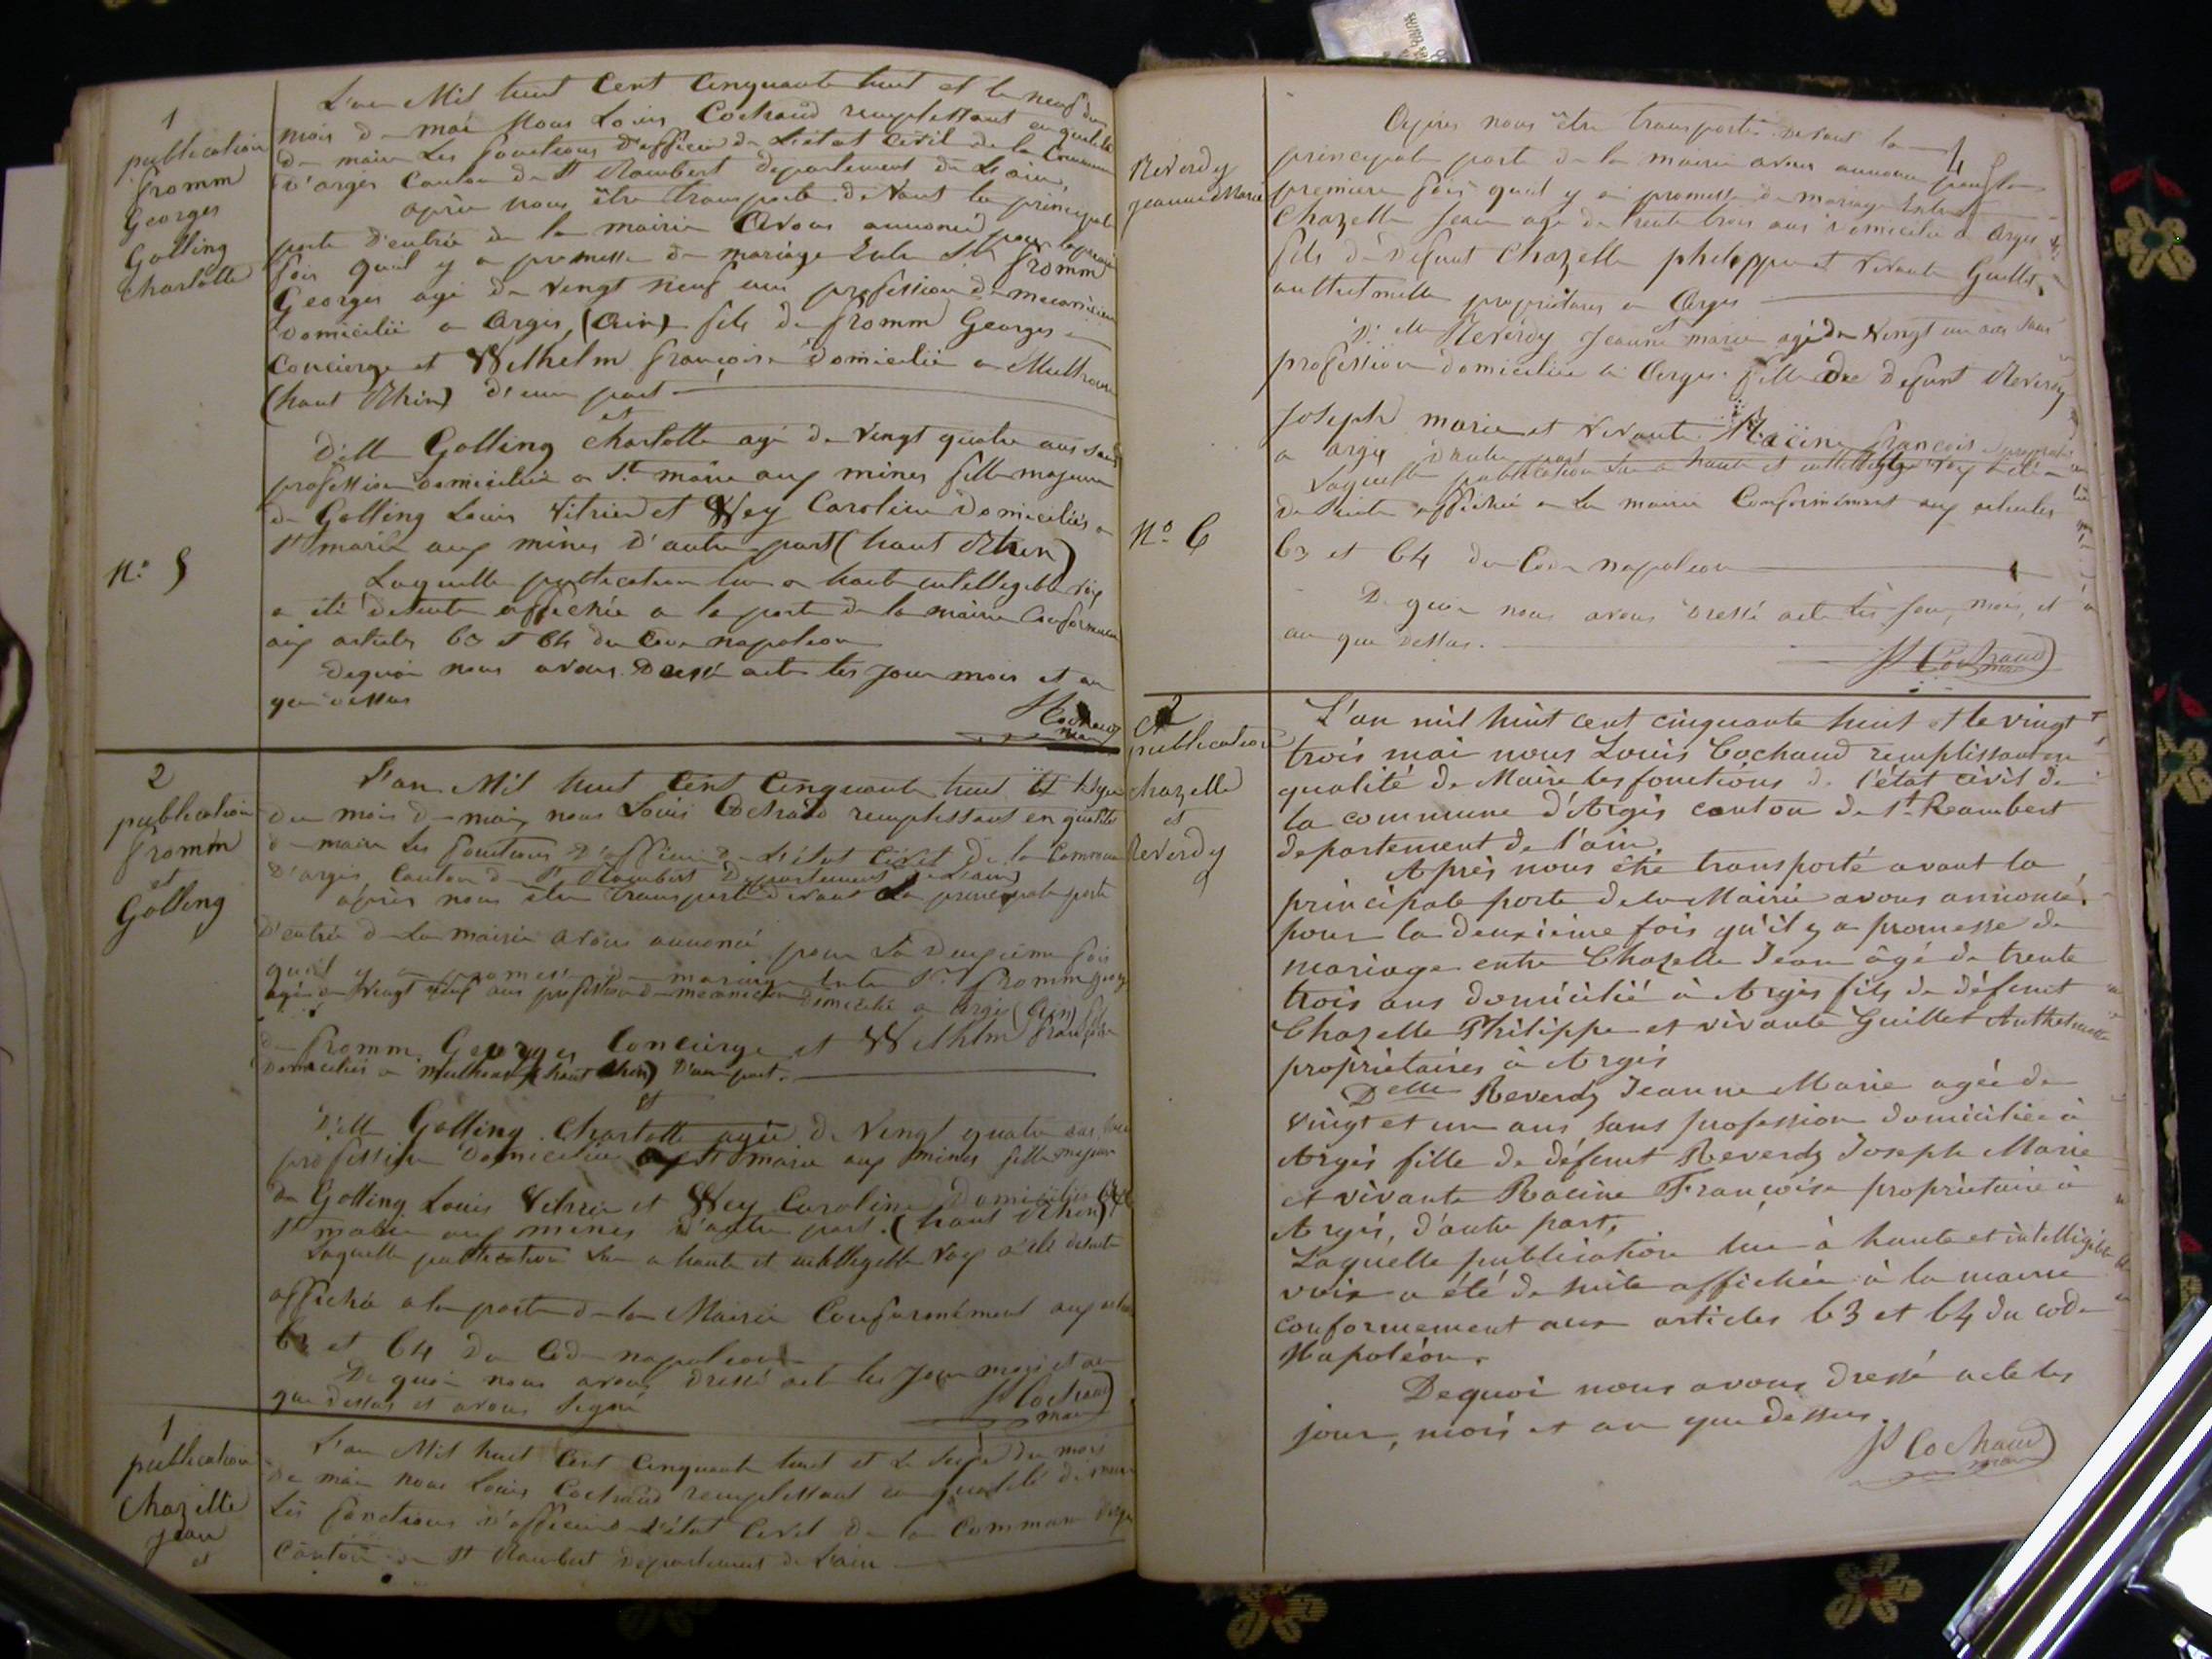 1
publication
fromm
Georges
Golling
charlotte
L'an Mil huit Cent Cinquante huit et le neuf du
mois de mai Nous Louis Cochaud remplissant en qualité
de maire Les fonctions d'officier de L'état Civil de la Commune
d'argis Canton de St Rambert departement de L'ain,
après nous être transporté devant la principale
porte d'entrée de la mairie Avons annoncé pour la premiere
fois quil y a promesse de mariage Entre Sr fromm
Georges agé de vingt neuf ans profession de mecanicien
domicilié a Argis, (Ain) fils de fromm Georges
Concierge et Wilhelm françoise domicilié a Mulhouse
(haut Rhin) d'une part
et
Dlle Golling charlotte agé de vingt quatre ans sans
profession domiciliée a St marie aux mines fille majeure
de Golling Louis Vitrier et Wey Caroline Domiciliés a
St marie aux mines d'autre part (haut Rhin)
N° 5
Laquelle publication lue a haute intelligible voix
a été desuite affichée a la porte de la mairie Conformement
aux articles 63 et 64 du Code napoleon
dequoi nous avons Dressé acte les jour mois et an
que dessus
Cochaud
maire
2
publication
fromm
et
Golling
L'an Mil huit Cent Cinquante huit et le seize
du mois de mai, nous Louis Cochaud remplissant en qualité
de maire Les fonctions d'officier de L'état Civil de la Commune
D'argis Canton de St Rambert Departement de L'ain
après nous être transporté devant La principale porte
D'entrée de La mairie avons annoncé pour La Deuxième fois
quil y a promesse de mariage Entre Sr fromm georges
agé de vingt neuf ans profession de mecanicien Domicilié a Argis (Ain) fils
de fromm Georges Concierge et Wilhelm françoise
Domiciliés a Mulhouse (haut Rhin) D'une part.
et
Dlle Golling Charlotte agée de vingt quatre ans sans
profession Domiciliée a St marie aux mines fille majeure
de Golling Louis Vitrier et Wey Caroline Domiciliés
St marie aux mines d'autre part. (haut Rhin)
Laquelle publication Lue a haute et intelligible voix a été desuite
affiché a la porte de la Mairie Conformément aux articles
63 et 64 du Code napoleon
De quoi nous avons dressé acte les Jour mois et an
que dessus et avons signé
Cochaud
maire
1
publication
Chazelle
jean
et
L'an Mil huit Cent Cinquante huit et Le Seize Du mois
de mai nous Louis Cochaud remplissant en qualité de maire
Les fonctions d'officier de l'état Civil de la Commune d'argis
Canton de St Rambert departement de L'ain
Reverdy
jeanne Marie
Après nous être transporté devant la
principale porte de la mairie avons annoncé pour la
premiere fois quil y a promesse de mariage Entre
Chazelle Jean agé de trente trois ans domicilié a Argis
fils de défunt Chazelle philippe et vivante Guillet
anthelmette propriétaires a Argis
et
Dlle Reverdy Jeanne marie agé de vingt un ans sans
profession domiciliée a Argis fille de defunt Reverdy
Joseph marie et vivante Racine françois
a argis d'autre part
Laquelle publication lue a haute et intelligible voix a été
N° 6
de suite affichée a la mairie Conformément aux articles
63 et 64 du Code napoleon
De quoi nous avons dressé acte les jour, mois, et
an que dessus.
Cochaud
maire
2
publication
Chazelle
et
Reverdy
L'an mil huit cent cinquante huit et le vingt
trois mai nous Louis Cochaud remplissant en
qualité de Maire les fonctions de l'état civil de
la commune d'Argis canton de St. Rambert
departement de l'ain.
Après nous être transporté avant la
principale porte de la Mairie avons annoncé
pour la deuxième fois qu'il y a promesse de
mariage entre Chazelle Jean âgé de trente
trois ans domicilié à Argis fils de défunt
Chazelle Philippe et vivante Guillet Anthelmette
propriétaires à Argis
Delle Reverdy Jeanne Marie agée de
vingt et un ans sans profession domiciliée à
Argis fille de défunt Reverdy Joseph Marie
et vivante Racine Françoise propriétaire à
Argis, d'autre part.
Laquelle publication lue à haute et intelligible
voix a été de suite affichée à la mairie
conformement aux articles 63 et 64 du code
Napoléon.
Dequoi nous avons dressé acte les
jour, mois et an que dessus.
Cochaud
maire